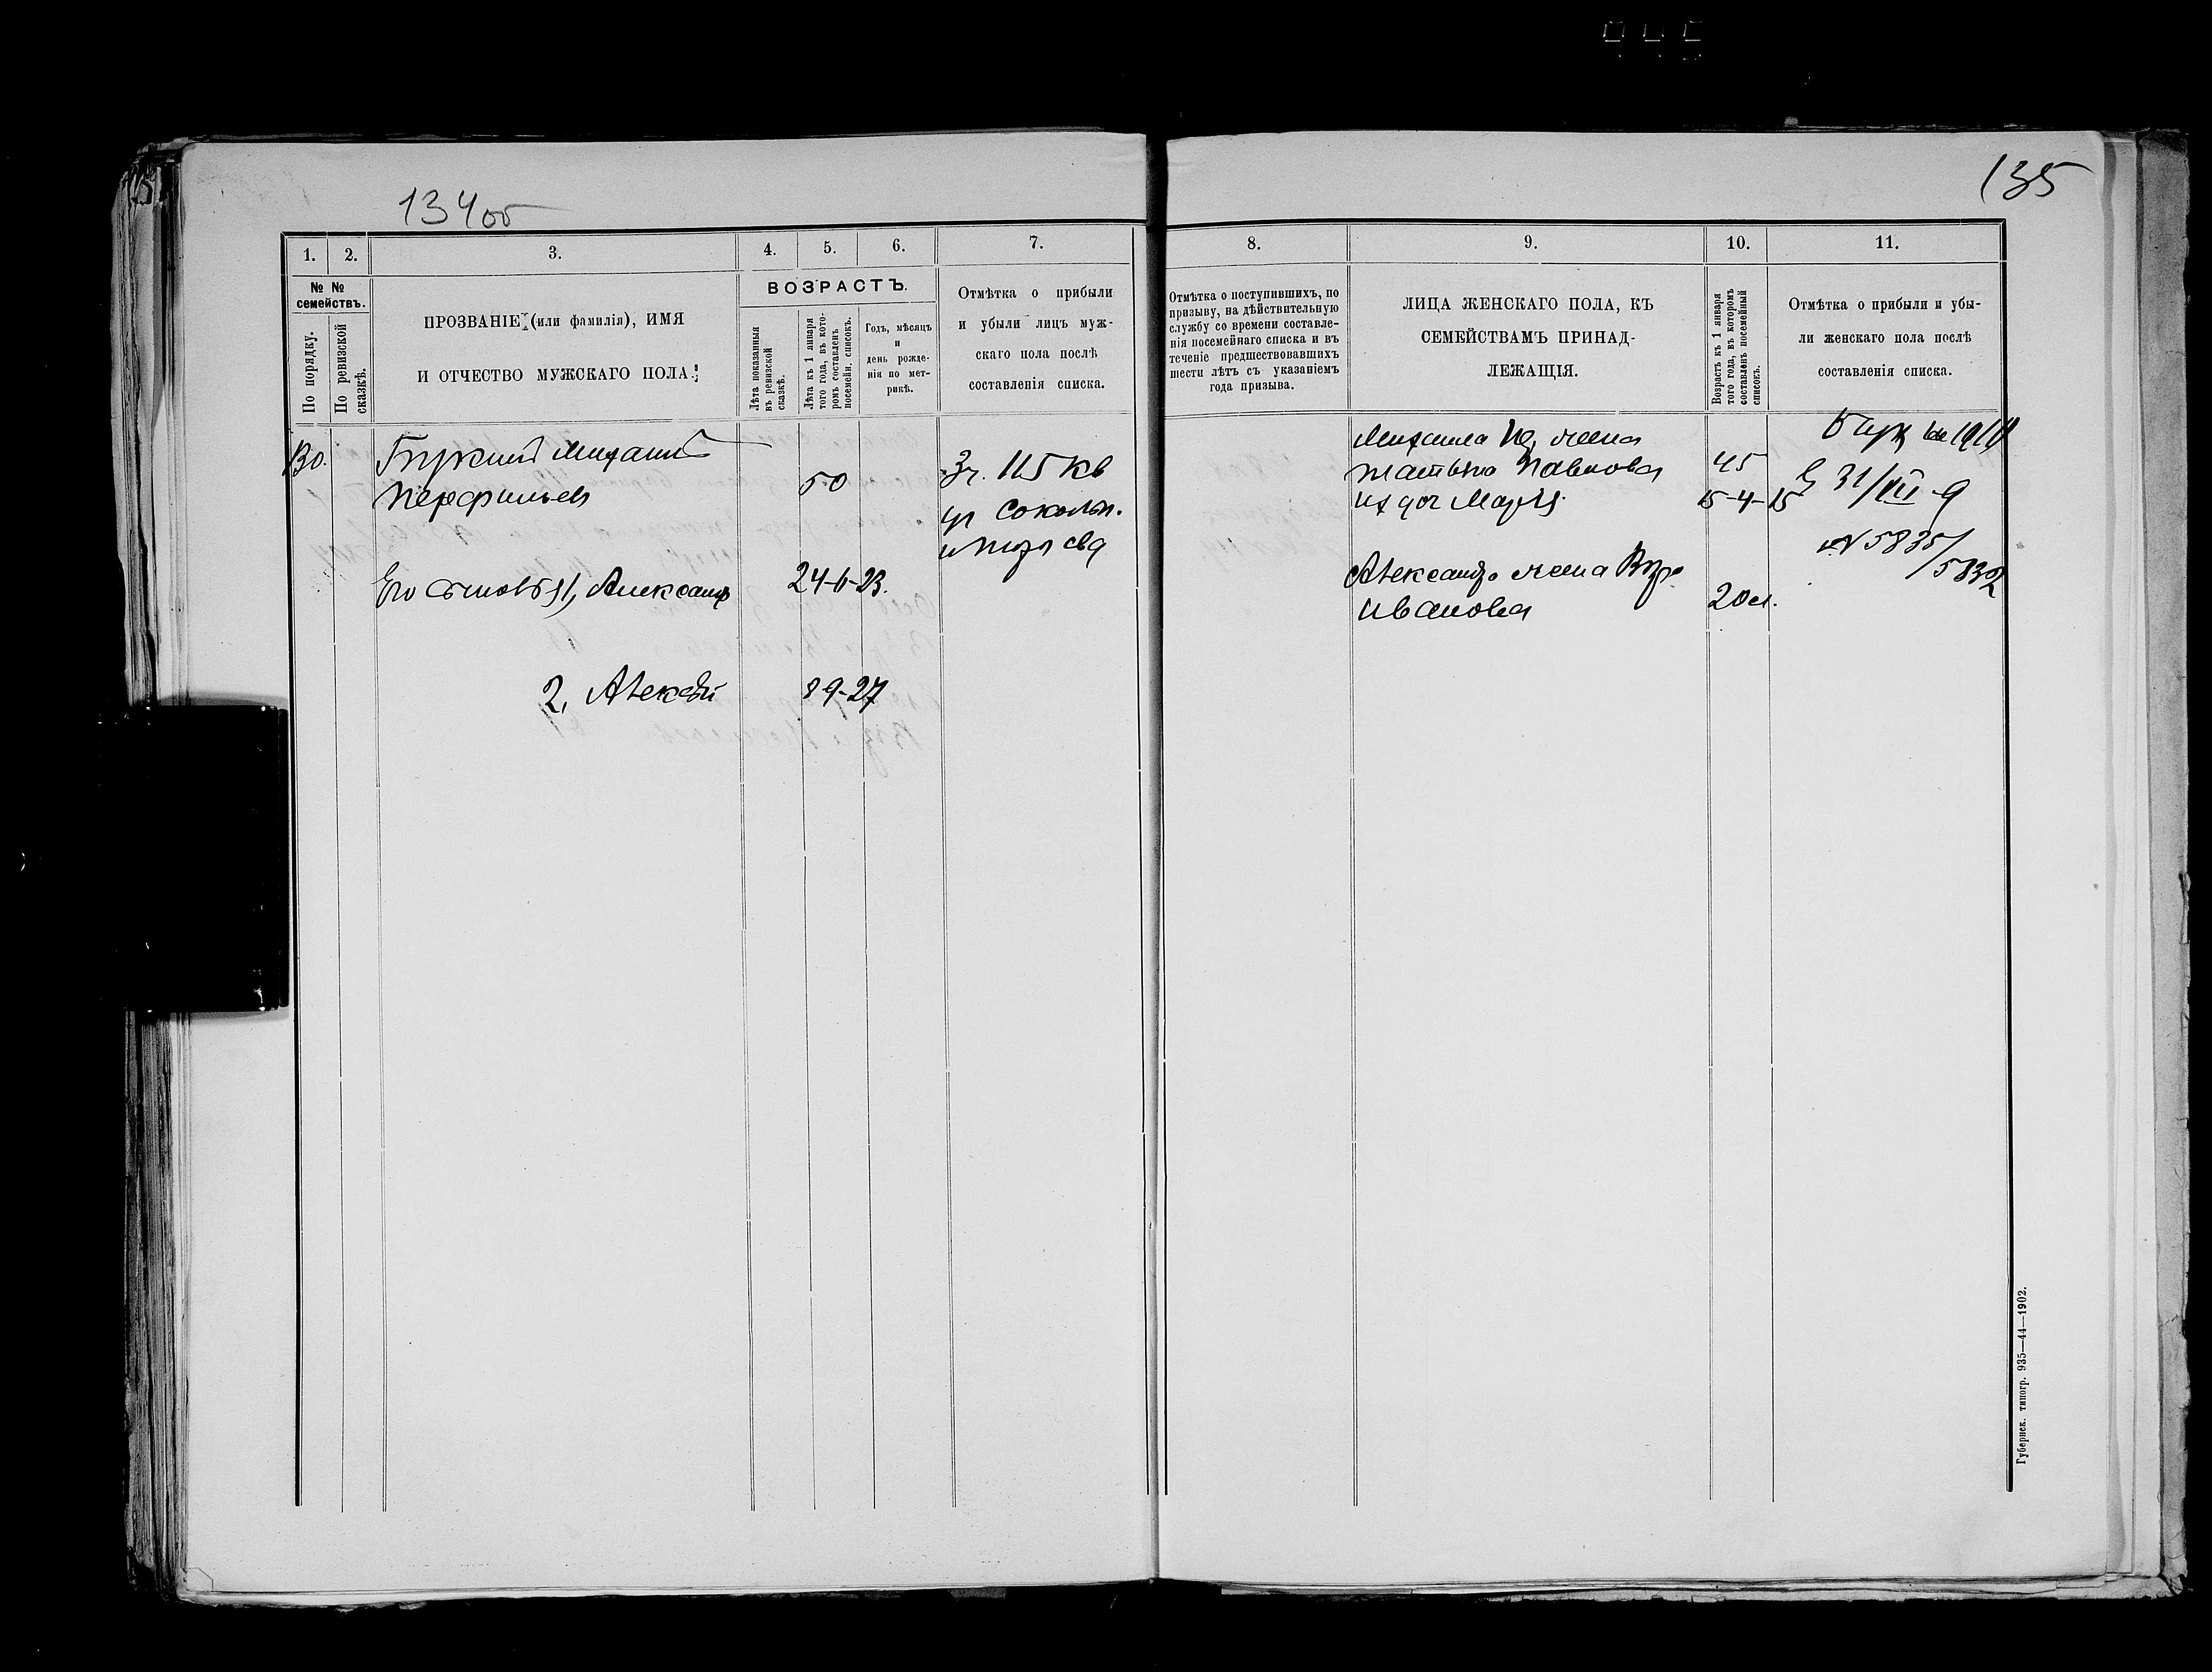 134об
135
1.
2.
3.
4.
5.
6.
7.
8.
9.
10.
11.
№ №
семействъ.
По порядку.
По ревизской
сказкѣ.
ПРОЗВАНІЕ (или фамилія), ИМЯ
И ОТЧЕСТВО МУЖСКАГО ПОЛА.
ВОЗРАСТЪ.
Лѣта показанныя
въ ревизской
сказкѣ.
Лѣта къ 1 января
того года, въ кото-
ромъ составленъ
посемейн. списокъ.
Годъ, мѣсяцъ
и
день рожде-
нія по мет-
рикѣ.
Отмѣтка о прибыли
и убыли лицъ муж-
скаго пола послѣ
составленія списка.
Отмѣтка о поступившихъ, по
призыву, на дѣйствительную
службу со времени составле-
нія посемейнаго списка и въ
теченіе предшествовавшихъ
шести лѣтъ съ указаніемъ
года призыва.
ЛИЦА ЖЕНСКАГО ПОЛА, КЪ
СЕМЕЙСТВАМЪ ПРИНАД-
ЛЕЖАЩІЯ.
Возрастъ къ 1 января
того года, въ которомъ
составленъ посемейный
списокъ.
Отмѣтка о прибыли и убы-
ли женскаго пола послѣ
составленія списка.
130.
Михаилъ
Перфильевъ
50
115 кв
Сокольн.
Его сыновья 1, Александръ
24-6-23.
2, Алексѣй
89-27
Михаила жена
Татьяна Павлова
45
15-4-15
31/VII 9
№ 5835/
5832
Александра жена
Иванова
20 л.
Губернск. типогр. 935—44—1902.